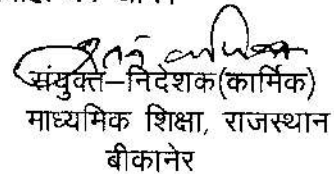 संयुक्त–निदेशक(कार्मिक)
माध्यमिक शिक्षा, राजस्थान
बीकानेर